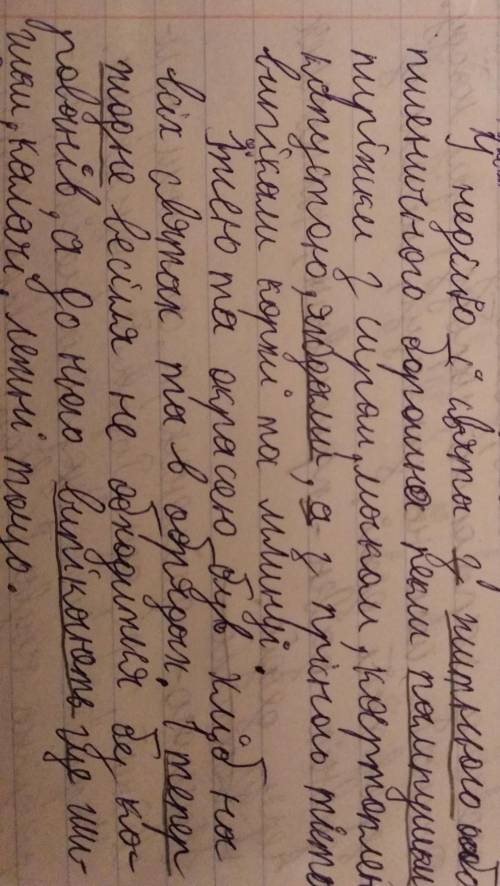 У неділю і свята з житнього або
пшеничного борошна пекли пампушки
пиріжки з сиром, маком, картоплею
капустою, ягодами, а з прісного тіста
випікали коржі та млинці.
їжею та окрасою був хліб на
всіх святах та в обрядах. І тепер
жодне весілля не обходиться без ко-
роваїв, а до нього випікають ще ши-
шки, калачі, лежні тощо.